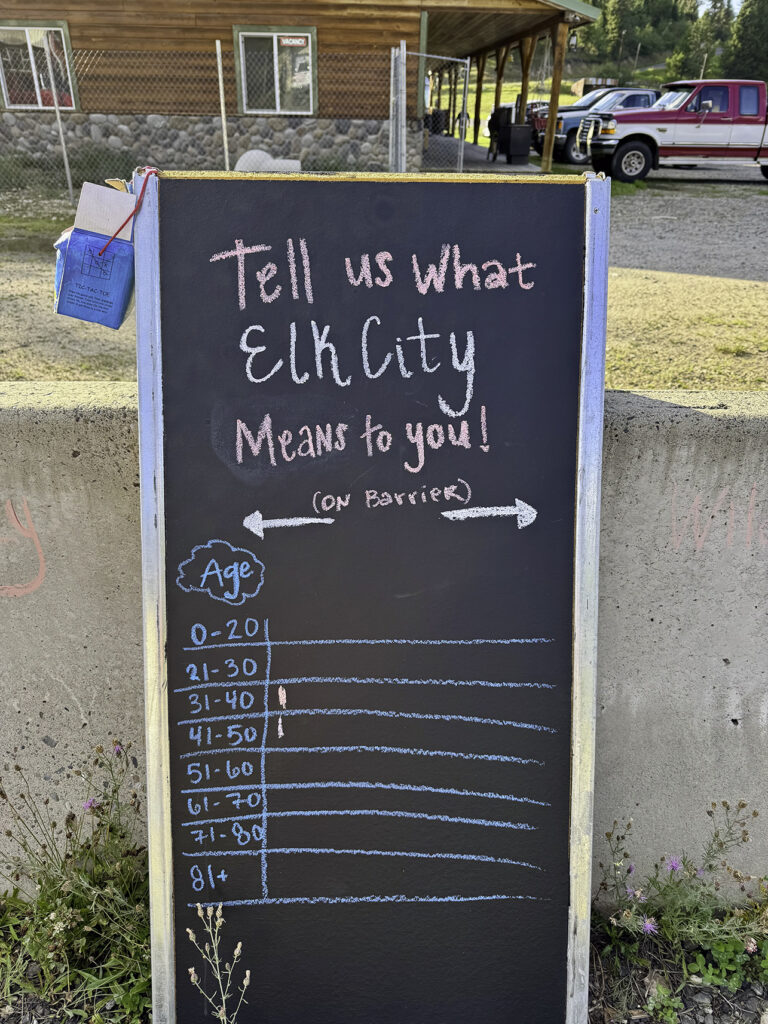 VACANCY
TIC-TAC-TOE
Tell us What
Elk City
Means to you!
(ON Barrier)
Age
0-20
21-30
31-40
41-50
51-60
61-70
71-80
81+